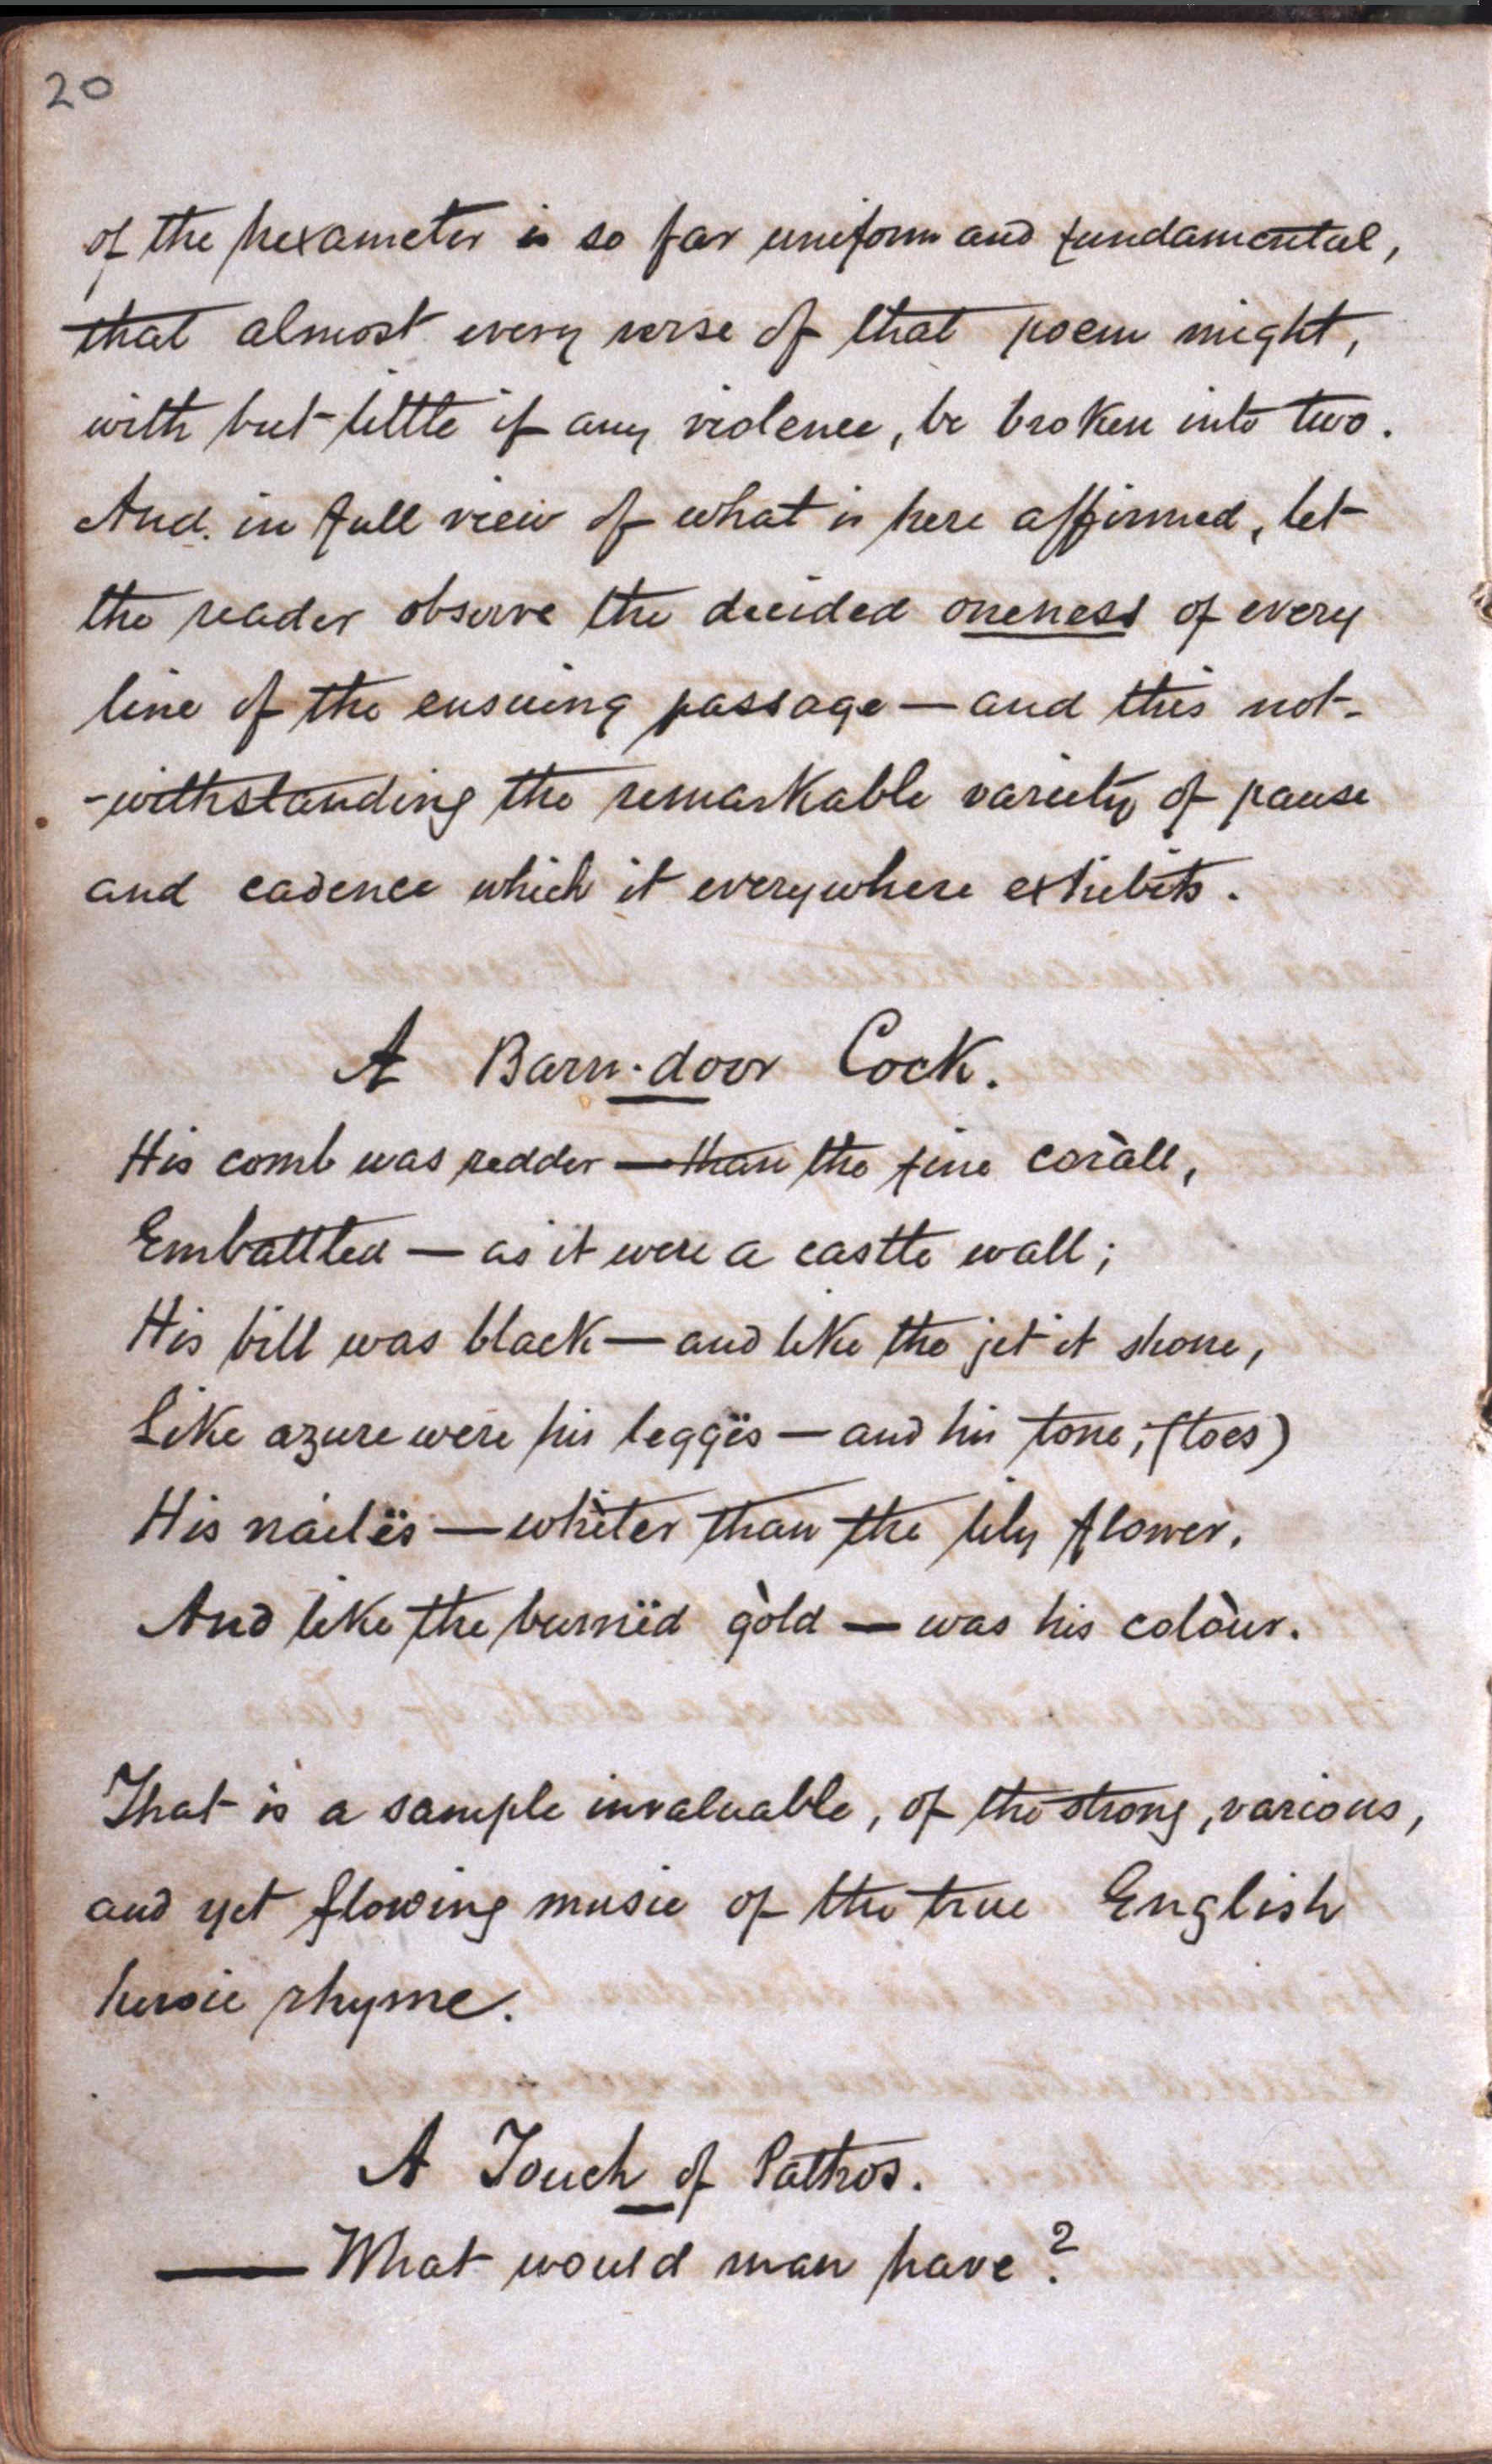 20
of the hexameter is so far uniform and fundamental,
that almost every verse of that poem might,
with but little if any violence, be broken into two.
And. in full view of what is here affirmed, let
the reader observe the decided oneness of every
line of the ensuing passage — and this not-
-withstanding the remarkable variety of pause
and cadence which it everywhere exhibits.
A Barn-door Cock.
His comb was redder — than the fine coràll,
Embattled — as it were a castle wall;
His bill was black — and like the jet it shone,
Like azure were his leggës — and his tone; (toes)
His nàilës — whìter than the lily flower,
And like the burnëd gòld — was his colòur.
That is a sample invaluable, of the strong, various,
and yet flowing music of the true English
heroic rhyme.
A Touch of Pathos.
— What would man have?